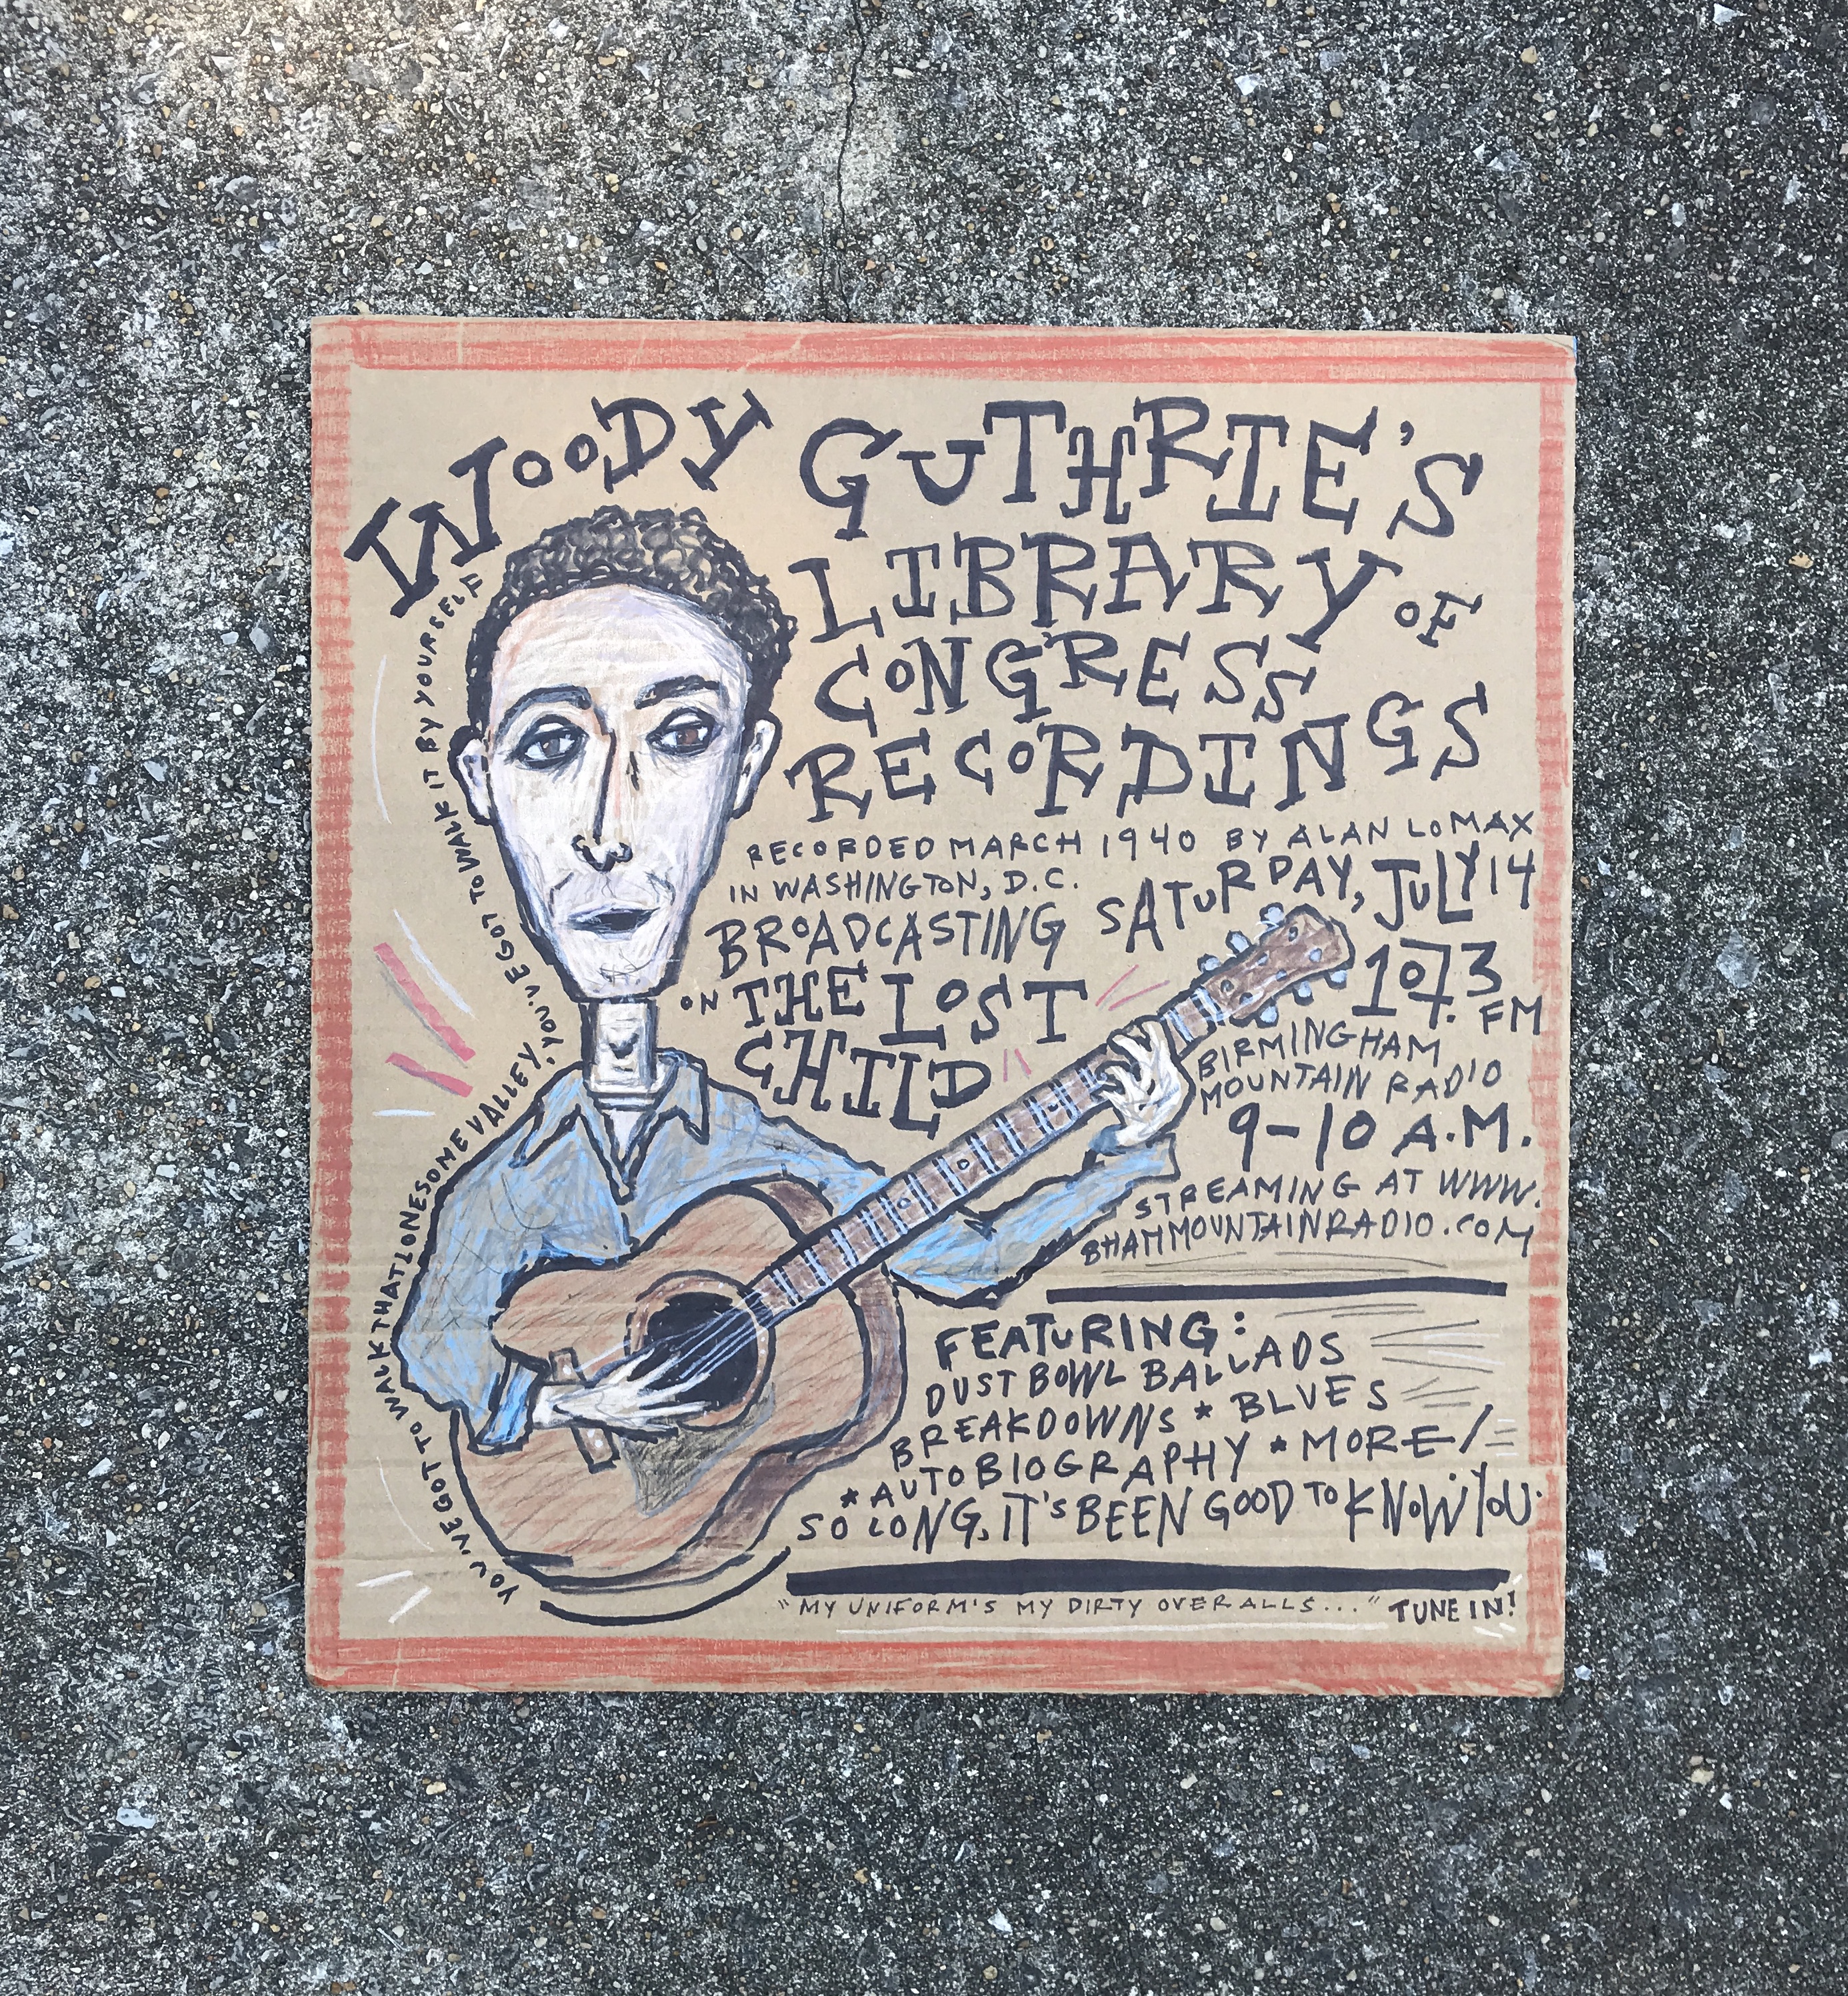 WOODY GUTHRIE'S
LIBRARY OF
CONGRESS
RECORDINGS
RECORDED MARCH 1940 BY ALAN LOMAX
IN WASHINGTON, D.C.
BROADCASTING SATURDAY, JULY 14
ON THE LOST
CHILD
107.3
FM
BIRMINGHAM
MOUNTAIN RADIO
9-10 A.M.
STREAMING AT WWW.
BHAMMOUNTAINRADIO.COM
FEATURING:
DUST BOWL BALLADS
BREAKDOWNS * BLUES
* AUTOBIOGRAPHY * MORE!
SO LONG, IT'S BEEN GOOD TO KNOW YOU.
"MY UNIFORM'S MY DIRTY OVERALLS..." TUNE IN!
YOU'VE GOT TO WALK THAT LONESOME VALLEY, YOU'VE GOT TO WALK IT BY YOURSELF